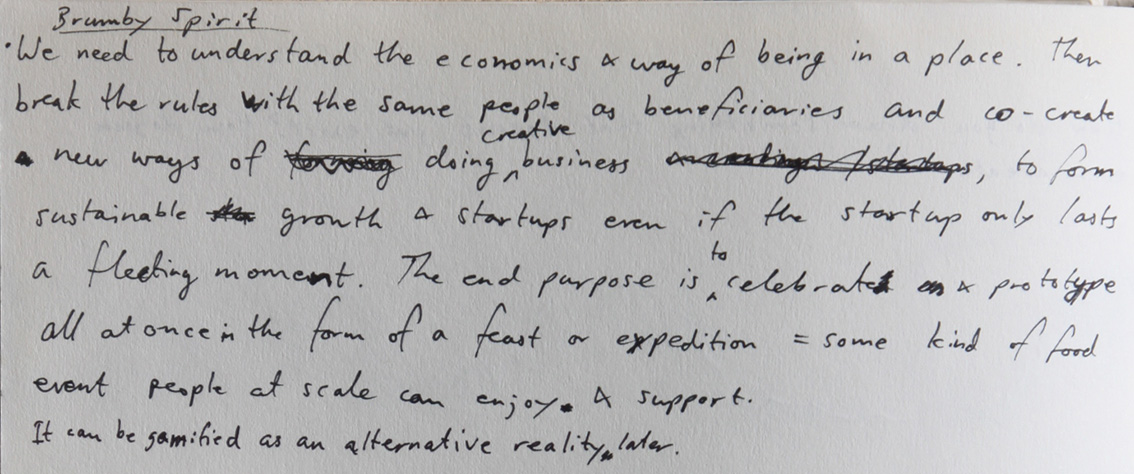 Brumby Spirit
• We need to understand the economics & way of being in a place. Then
break the rules with the same people as beneficiaries and co-create
new ways of doing creative business, to form
sustainable growth & startups even if the startup only lasts
a fleeting moment. The end purpose is to celebrate & prototype
all at once in the form of a feast or expedition = some kind of food
event people at scale can enjoy. & support.
It can be gamified as an alternative reality, later.